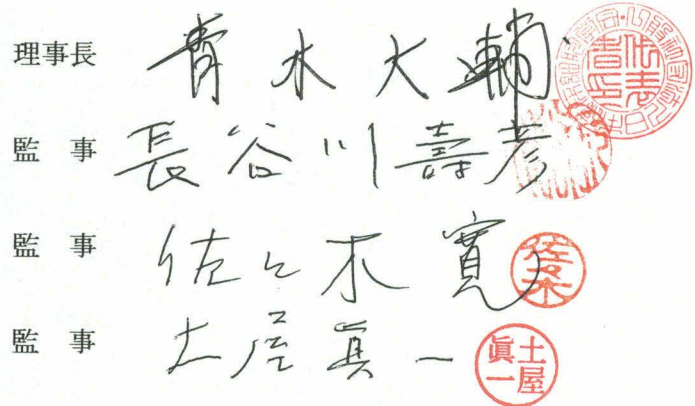 理事長 青木大輔
監事 長谷川壽彦
監事 佐々木寛 佐々木
監事 土屋眞一 土屋眞一